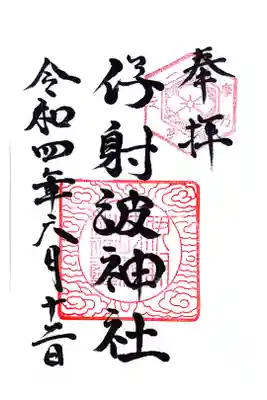 奉拝
伊射波神社
令和四年六月十二日